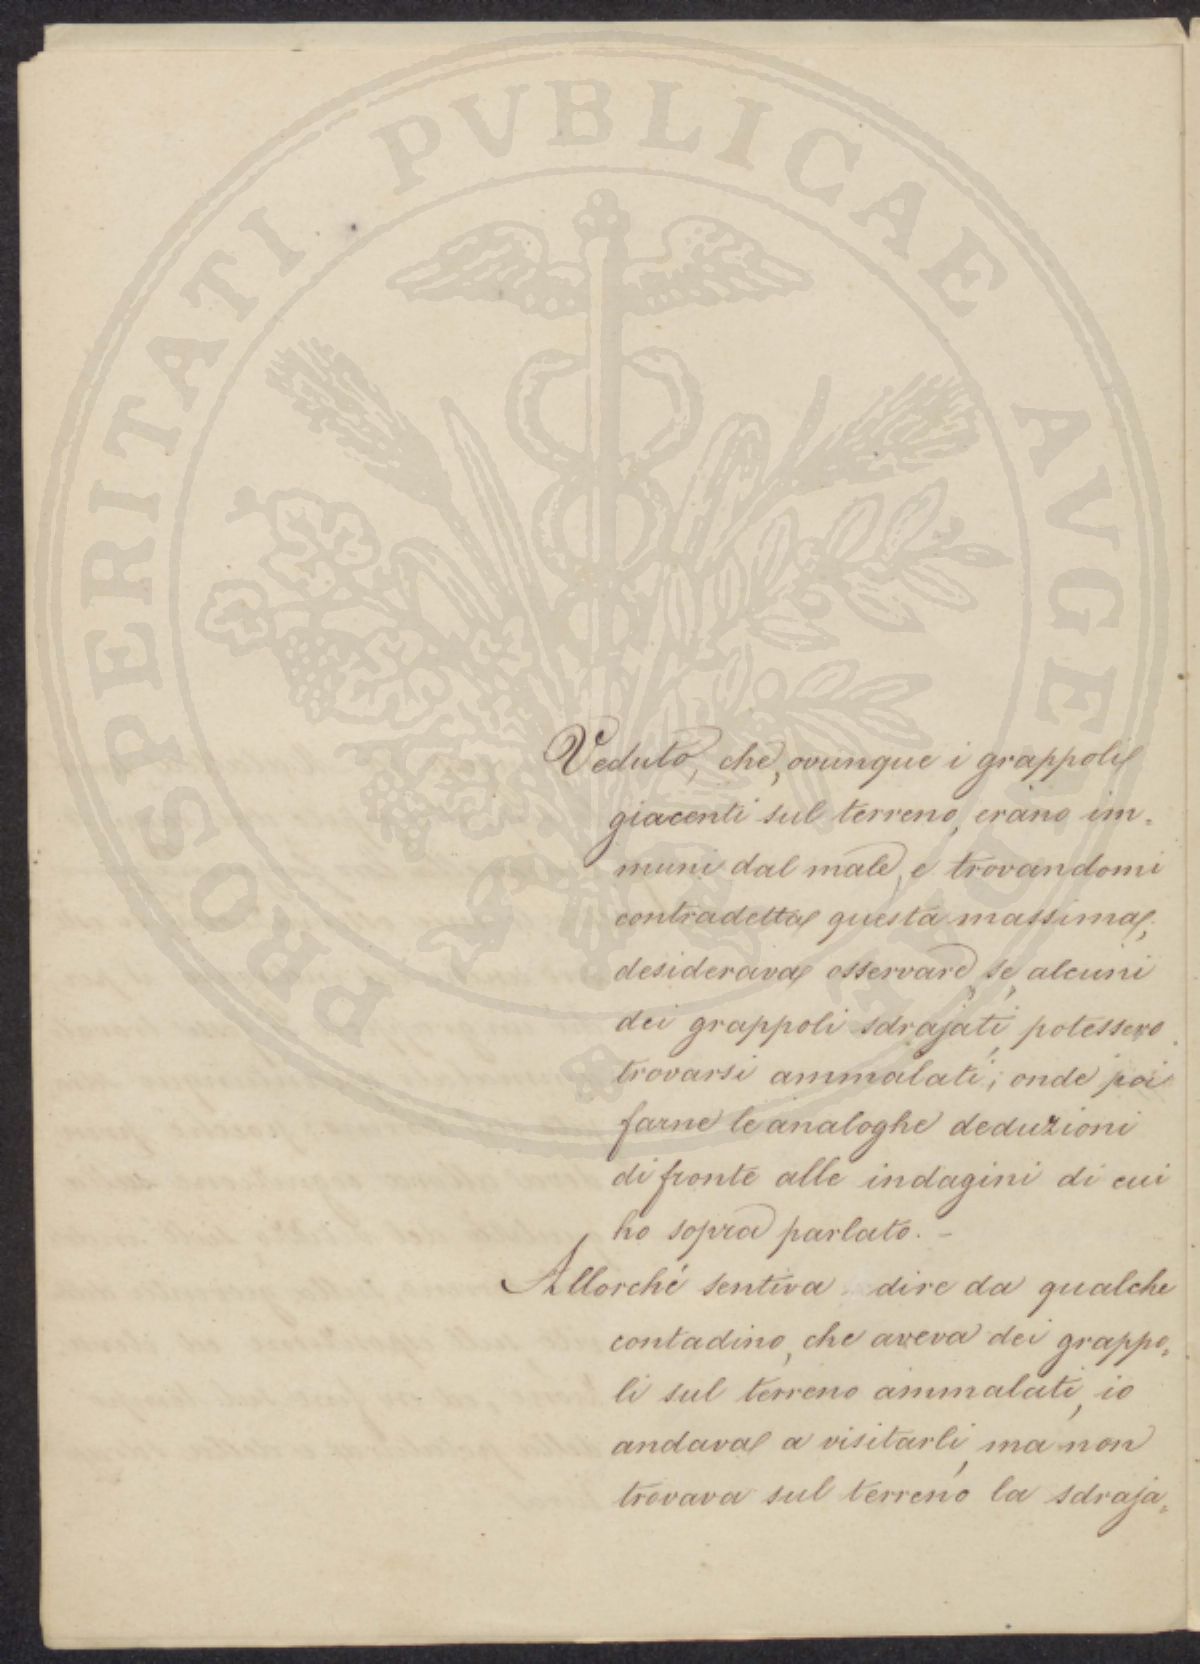 PROSPERITATI PVBLICAE AVGENDAE
Veduto, che, ovunque i grappoli
giacenti sul terreno, erano im=
muni dal male, e trovandomi
contradetta questa massima,
desiderava osservare, se, alcuni
dei grappoli sdrajati, potessero
trovarsi ammalati; onde poi
farne le analoghe deduzioni
di fronte alle indagini di cui
ho sopra parlato. -
Allorché sentiva dire da qualche
contadino, che aveva dei grappo=
li sul terreno ammalati, io
andava a visitarli, ma non
trovava sul terreno la sdraja=